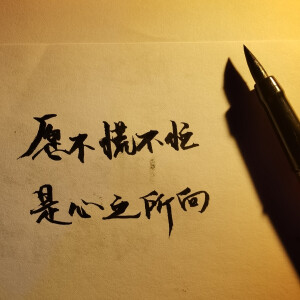 愿不慌不忙
是心之所向